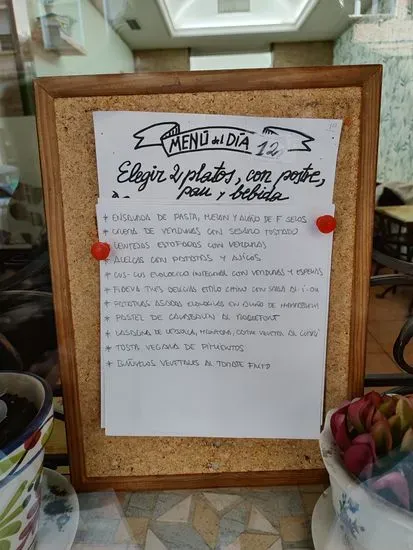 MENÚ del DÍA 12
Elegir 2 platos, con postre,
pan y bebida
* ENSALADA DE PASTA, MELON Y ALIÑO DE F. SECOS
* CREMA DE VERDURAS CON SESAMO TOSTADO
* LENTEJAS ESTOFADAS CON VERDURAS
* ACELGAS CON PATATAS Y AJICOS
* CUS-CUS ECOLOGICO INTEGRAL CON VERDURAS Y ESPECIAS
* TRES DELICIAS ESTILO CHINO CON SALSA DE
* PATATAS ASADAS ECOLOGICAS EN ALIÑO DE
* PASTEL DE CALABACIN AL ROQUEFORT
* LASAGNA DE VERDURA, MANZANA, CARNE VEGETAL AL CURRY
* TOSTA VEGANA DE PIMIENTOS
* BUÑUELOS VEGETALES AL TOMATE FRITO